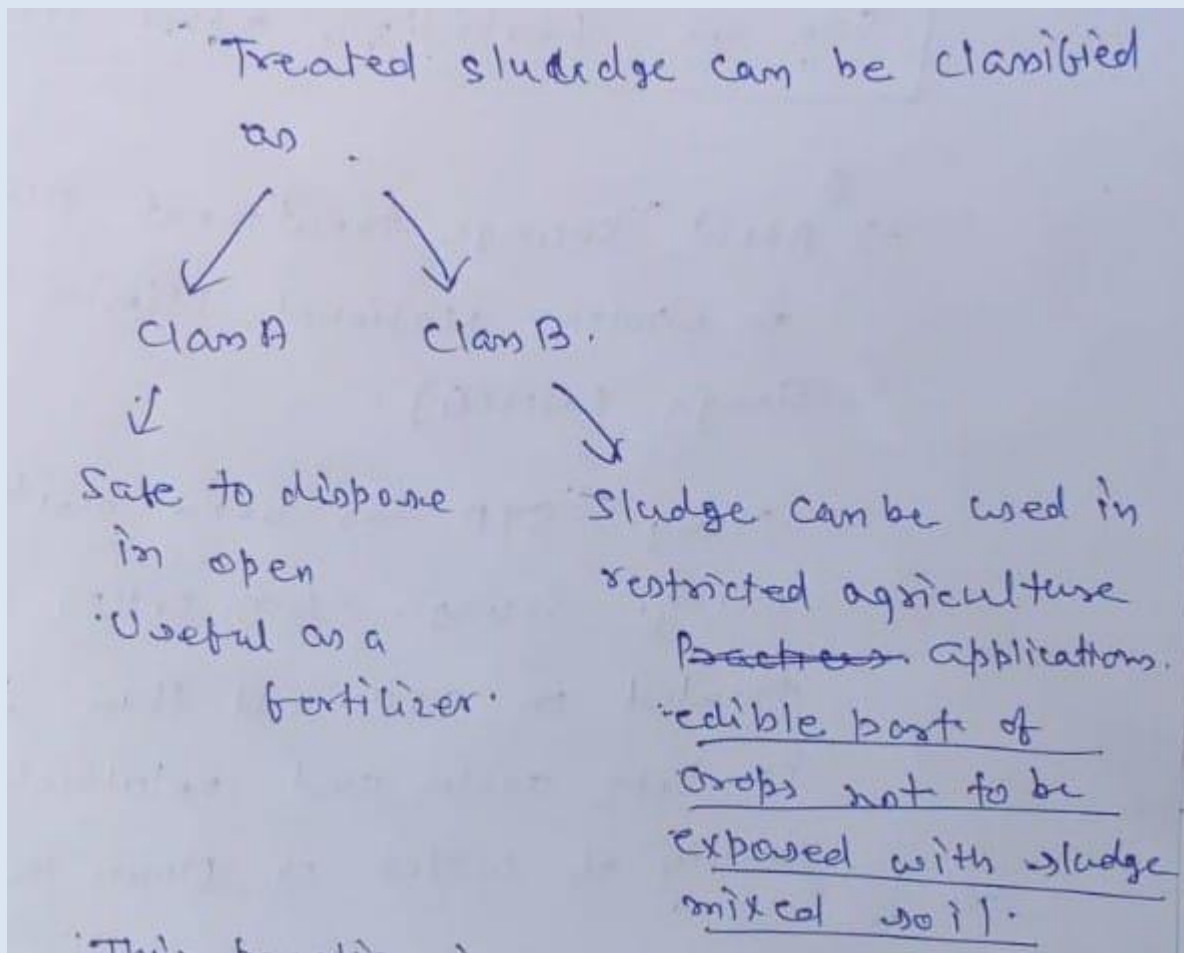 Treated sludedge can be classified
as
Class A
Class B.
Safe to dispose
in open
Useful as a
fertilizer.
Sludge can be used in
restricted agriculture
applications.
edible part of
crops not to be
exposed with sludge
mixed soil.